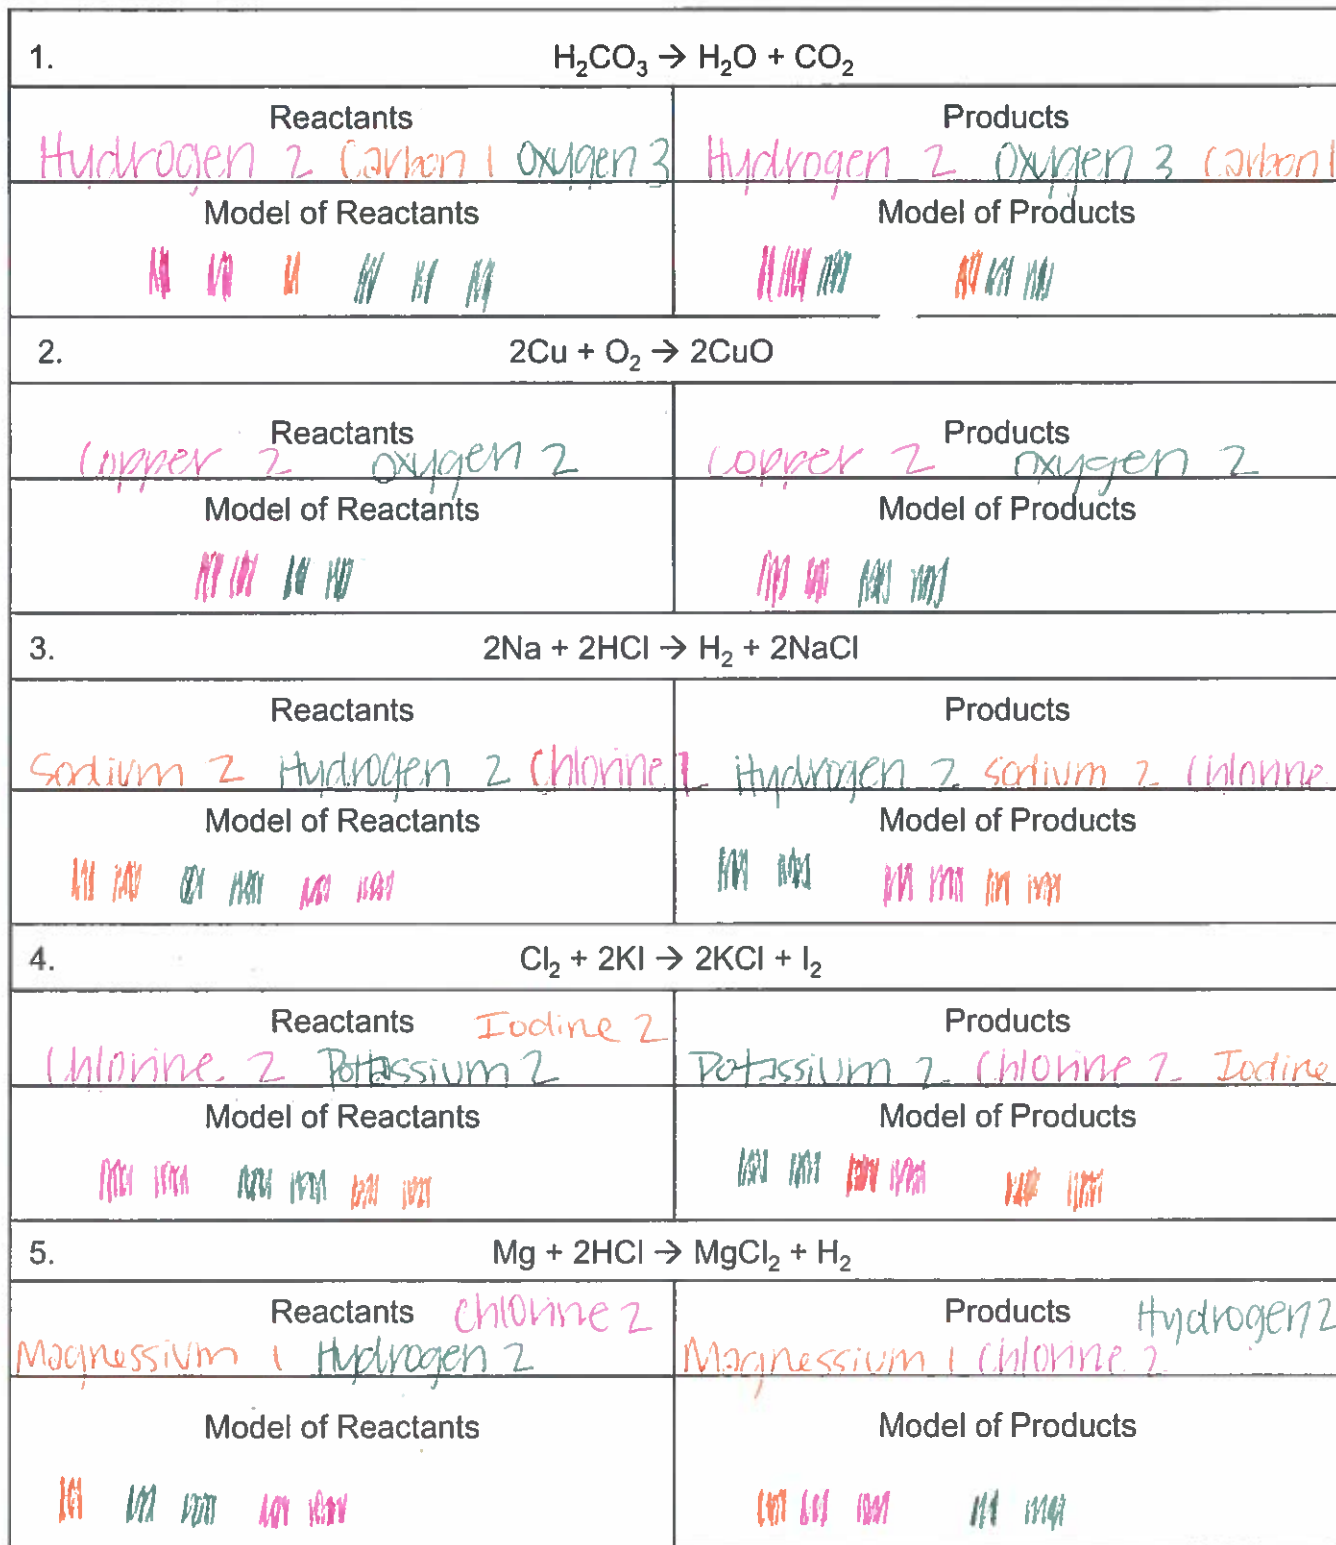 1. H₂CO₃ → H₂O + CO₂
Reactants
Hydrogen 2 Carbon 1 Oxygen 3
Products
Hydrogen 2 Oxygen 3 Carbon 1
Model of Reactants
Model of Products
2. 2Cu + O₂ → 2CuO
Reactants
Copper 2 Oxygen 2
Products
Copper 2 Oxygen 2
Model of Reactants
Model of Products
3. 2Na + 2HCl → H₂ + 2NaCl
Reactants
Sodium 2 Hydrogen 2 Chlorine 2
Products
Hydrogen 2 Sodium 2 Chlorine
Model of Reactants
Model of Products
4. Cl₂ + 2KI → 2KCl + I₂
Reactants Iodine 2
Chlorine 2 Potassium 2
Products
Potassium 2 Chlorine 2 Iodine
Model of Reactants
Model of Products
5. Mg + 2HCl → MgCl₂ + H₂
Reactants Chlorine 2
Magnessium 1 Hydrogen 2
Products Hydrogen 2
Magnessium 1 Chlorine 2
Model of Reactants
Model of Products